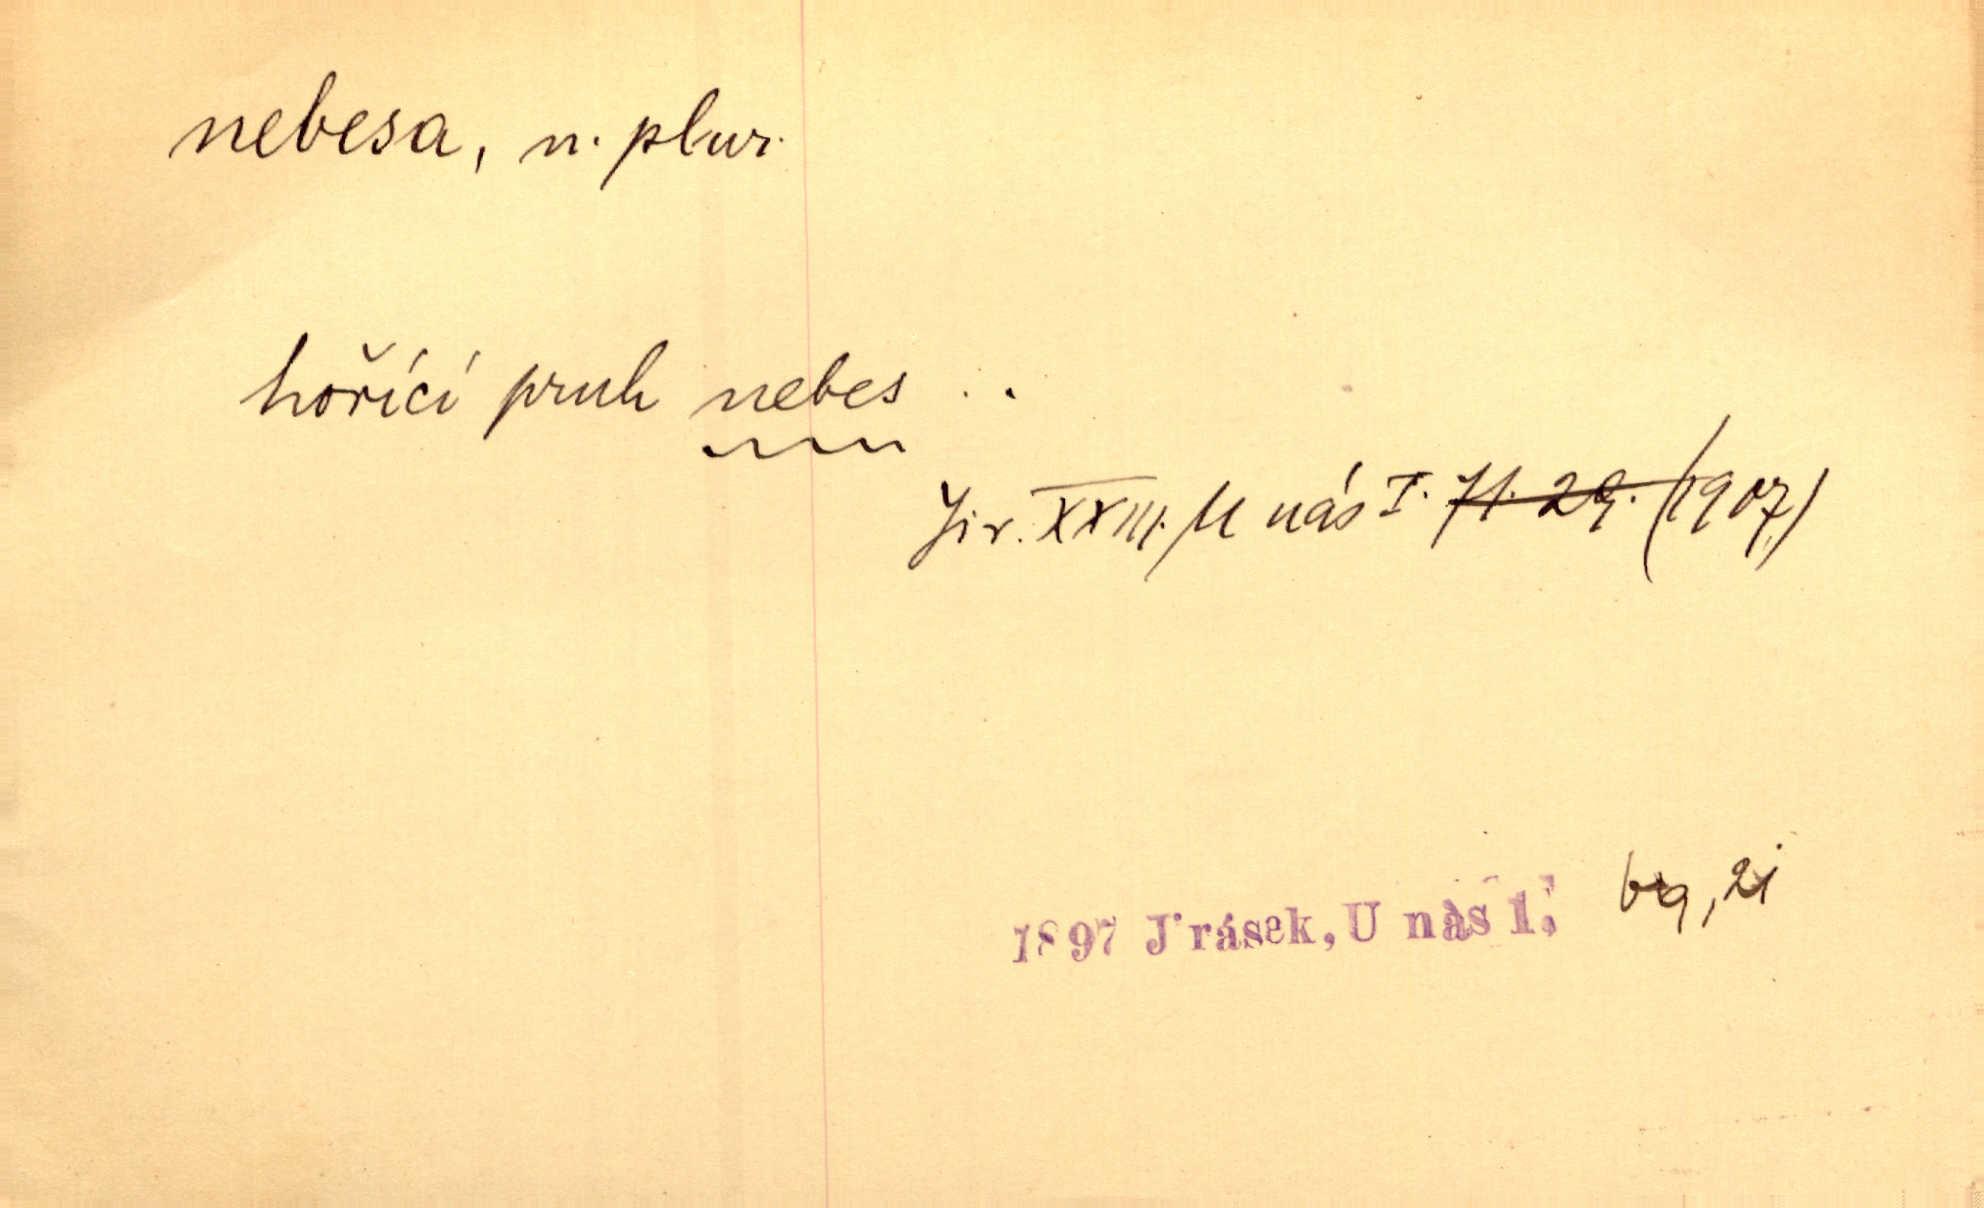 nebesa, n. plur.
hořící pruh nebes ..
Jir. XXIII. U nás I. 71. 29. (1907)
1897 Jirásek, U nás 1,